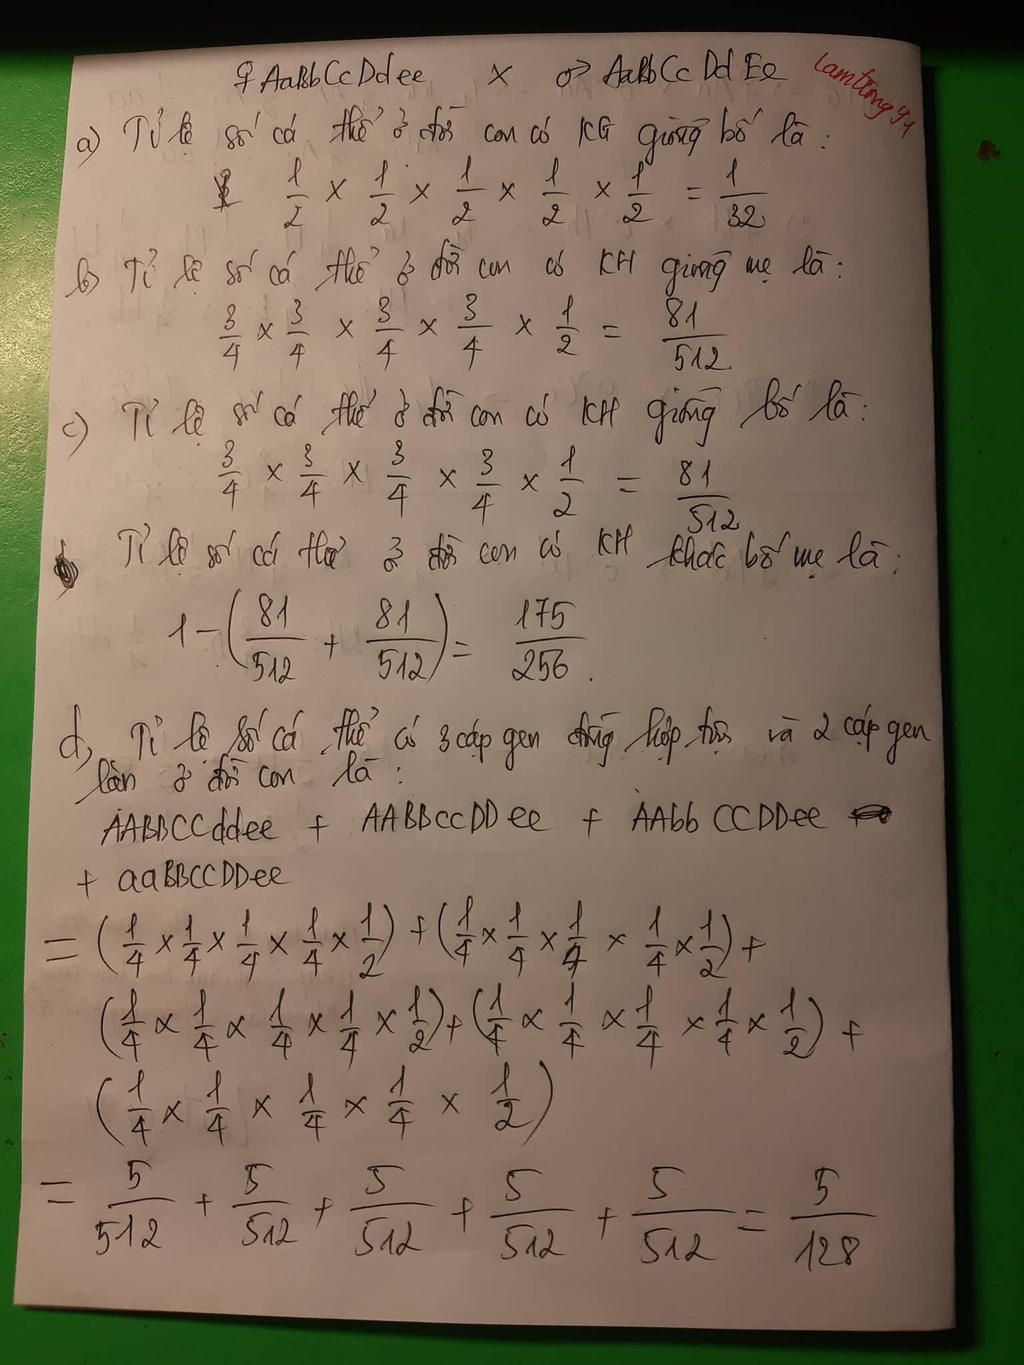 ♀ AaBbCcDdee × ♂ AaBbCcDdEe lamtrong91
a) Tỉ lệ số cá thể ở đời con có KG giống bố là:
1/2 × 1/2 × 1/2 × 1/2 × 1/2 = 1/32
b) Tỉ lệ số cá thể ở đời con có KH giống mẹ là:
3/4 × 3/4 × 3/4 × 3/4 × 1/2 = 81/512
c) Tỉ lệ số cá thể ở đời con có KH giống bố là:
3/4 × 3/4 × 3/4 × 3/4 × 1/2 = 81/512
Tỉ lệ số cá thể ở đời con có KH khác bố mẹ là:
1 - (81/512 + 81/512) = 175/256.
d, Tỉ lệ số cá thể có 3 cặp gen đồng hợp trội và 2 cặp gen
lặn ở đời con là:
AABBCCddee + AABBccDDee + AAbbCCDDee
+ aaBBCCDDee
= (1/4 × 1/4 × 1/4 × 1/4 × 1/2) + (1/4 × 1/4 × 1/4 × 1/4 × 1/2) +
(1/4 × 1/4 × 1/4 × 1/4 × 1/2) + (1/4 × 1/4 × 1/4 × 1/4 × 1/2) +
(1/4 × 1/4 × 1/4 × 1/4 × 1/2)
= 5/512 + 5/512 + 5/512 + 5/512 + 5/512 = 5/128